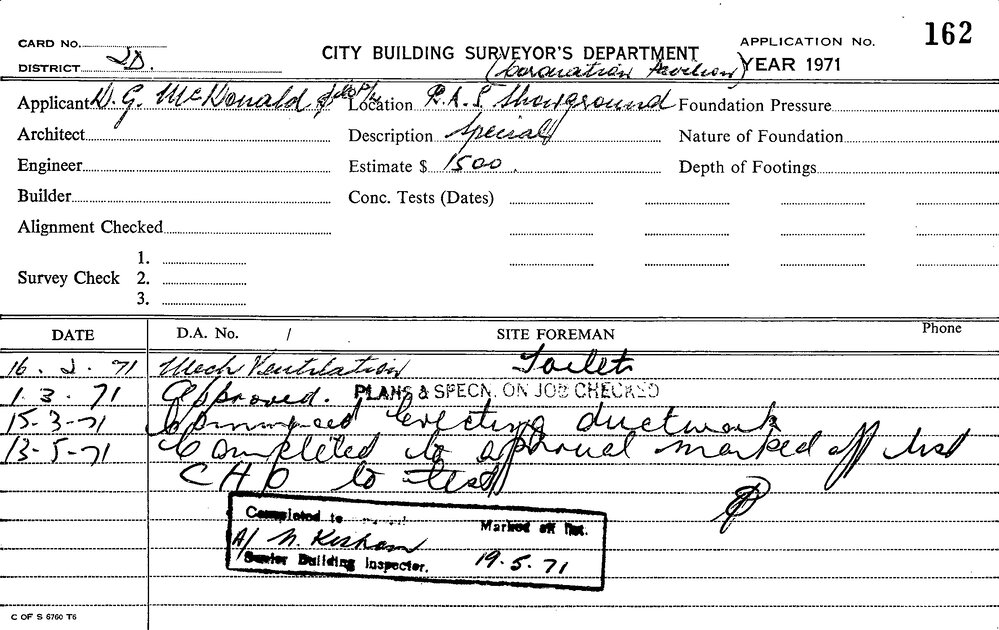 CARD No.
CITY BUILDING SURVEYOR'S DEPARTMENT
APPLICATION No. 162
DISTRICT 2D.
(Coronation Pavilion)
YEAR 1971
Applicant D. G. McDonald & Co P/L
Location R.A.S Showground
Foundation Pressure
Architect
Description Special
Nature of Foundation
Engineer
Estimate $ 1500.
Depth of Footings
Builder
Conc. Tests (Dates)
Alignment Checked
Survey Check
1.
2.
3.
DATE
D.A. No. /
SITE FOREMAN
Phone
16 . 2 . 71 Mech Ventilation Toilet
1 . 3 . 71 Approved. PLANS & SPECN. ON JOB CHECKED
15-3-71 Commenced Erecting ductwork
13-5-71 Completed to approval marked off list
CHO to test
Completed to
Marked off list.
A/
Senior Building Inspector.
19.5.71
C OF S 6760 T6